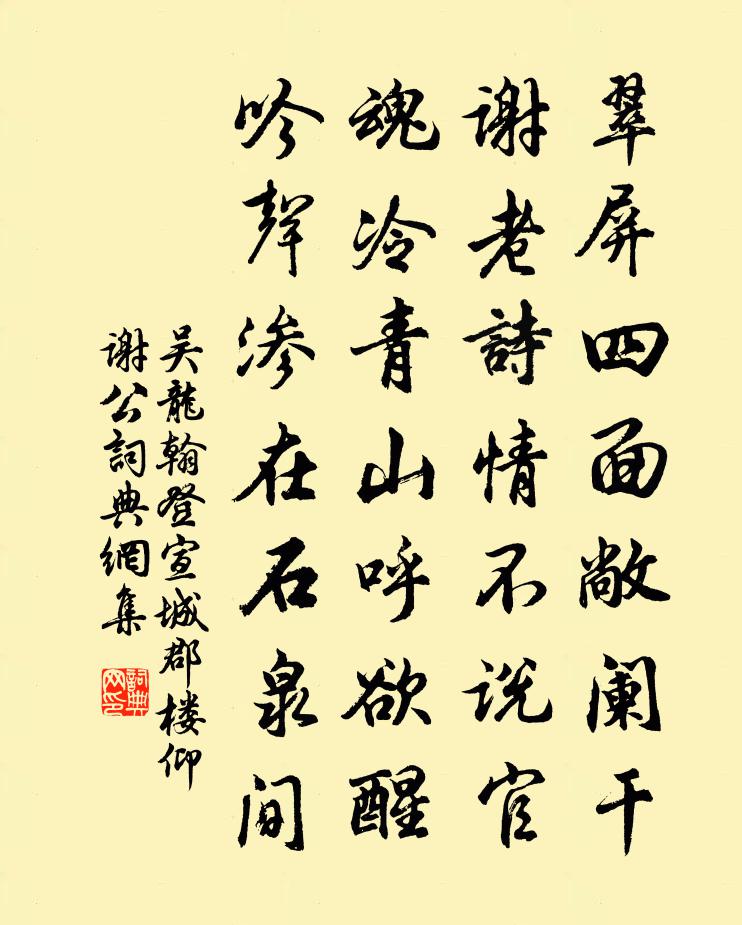 翠屏四面敞阑干
谢老詩情不说官
魂冷青山呼欲醒
吟聲渗在石泉间
吴龍翰登宣城郡楼仰
谢公詞典網集
詞典网印